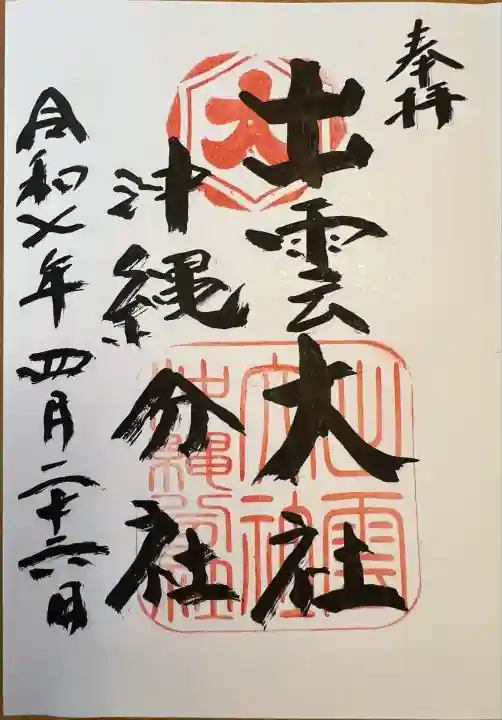 奉拝
出雲大社
沖縄分社
令和七年四月二十六日
大
出雲大社
沖縄分社